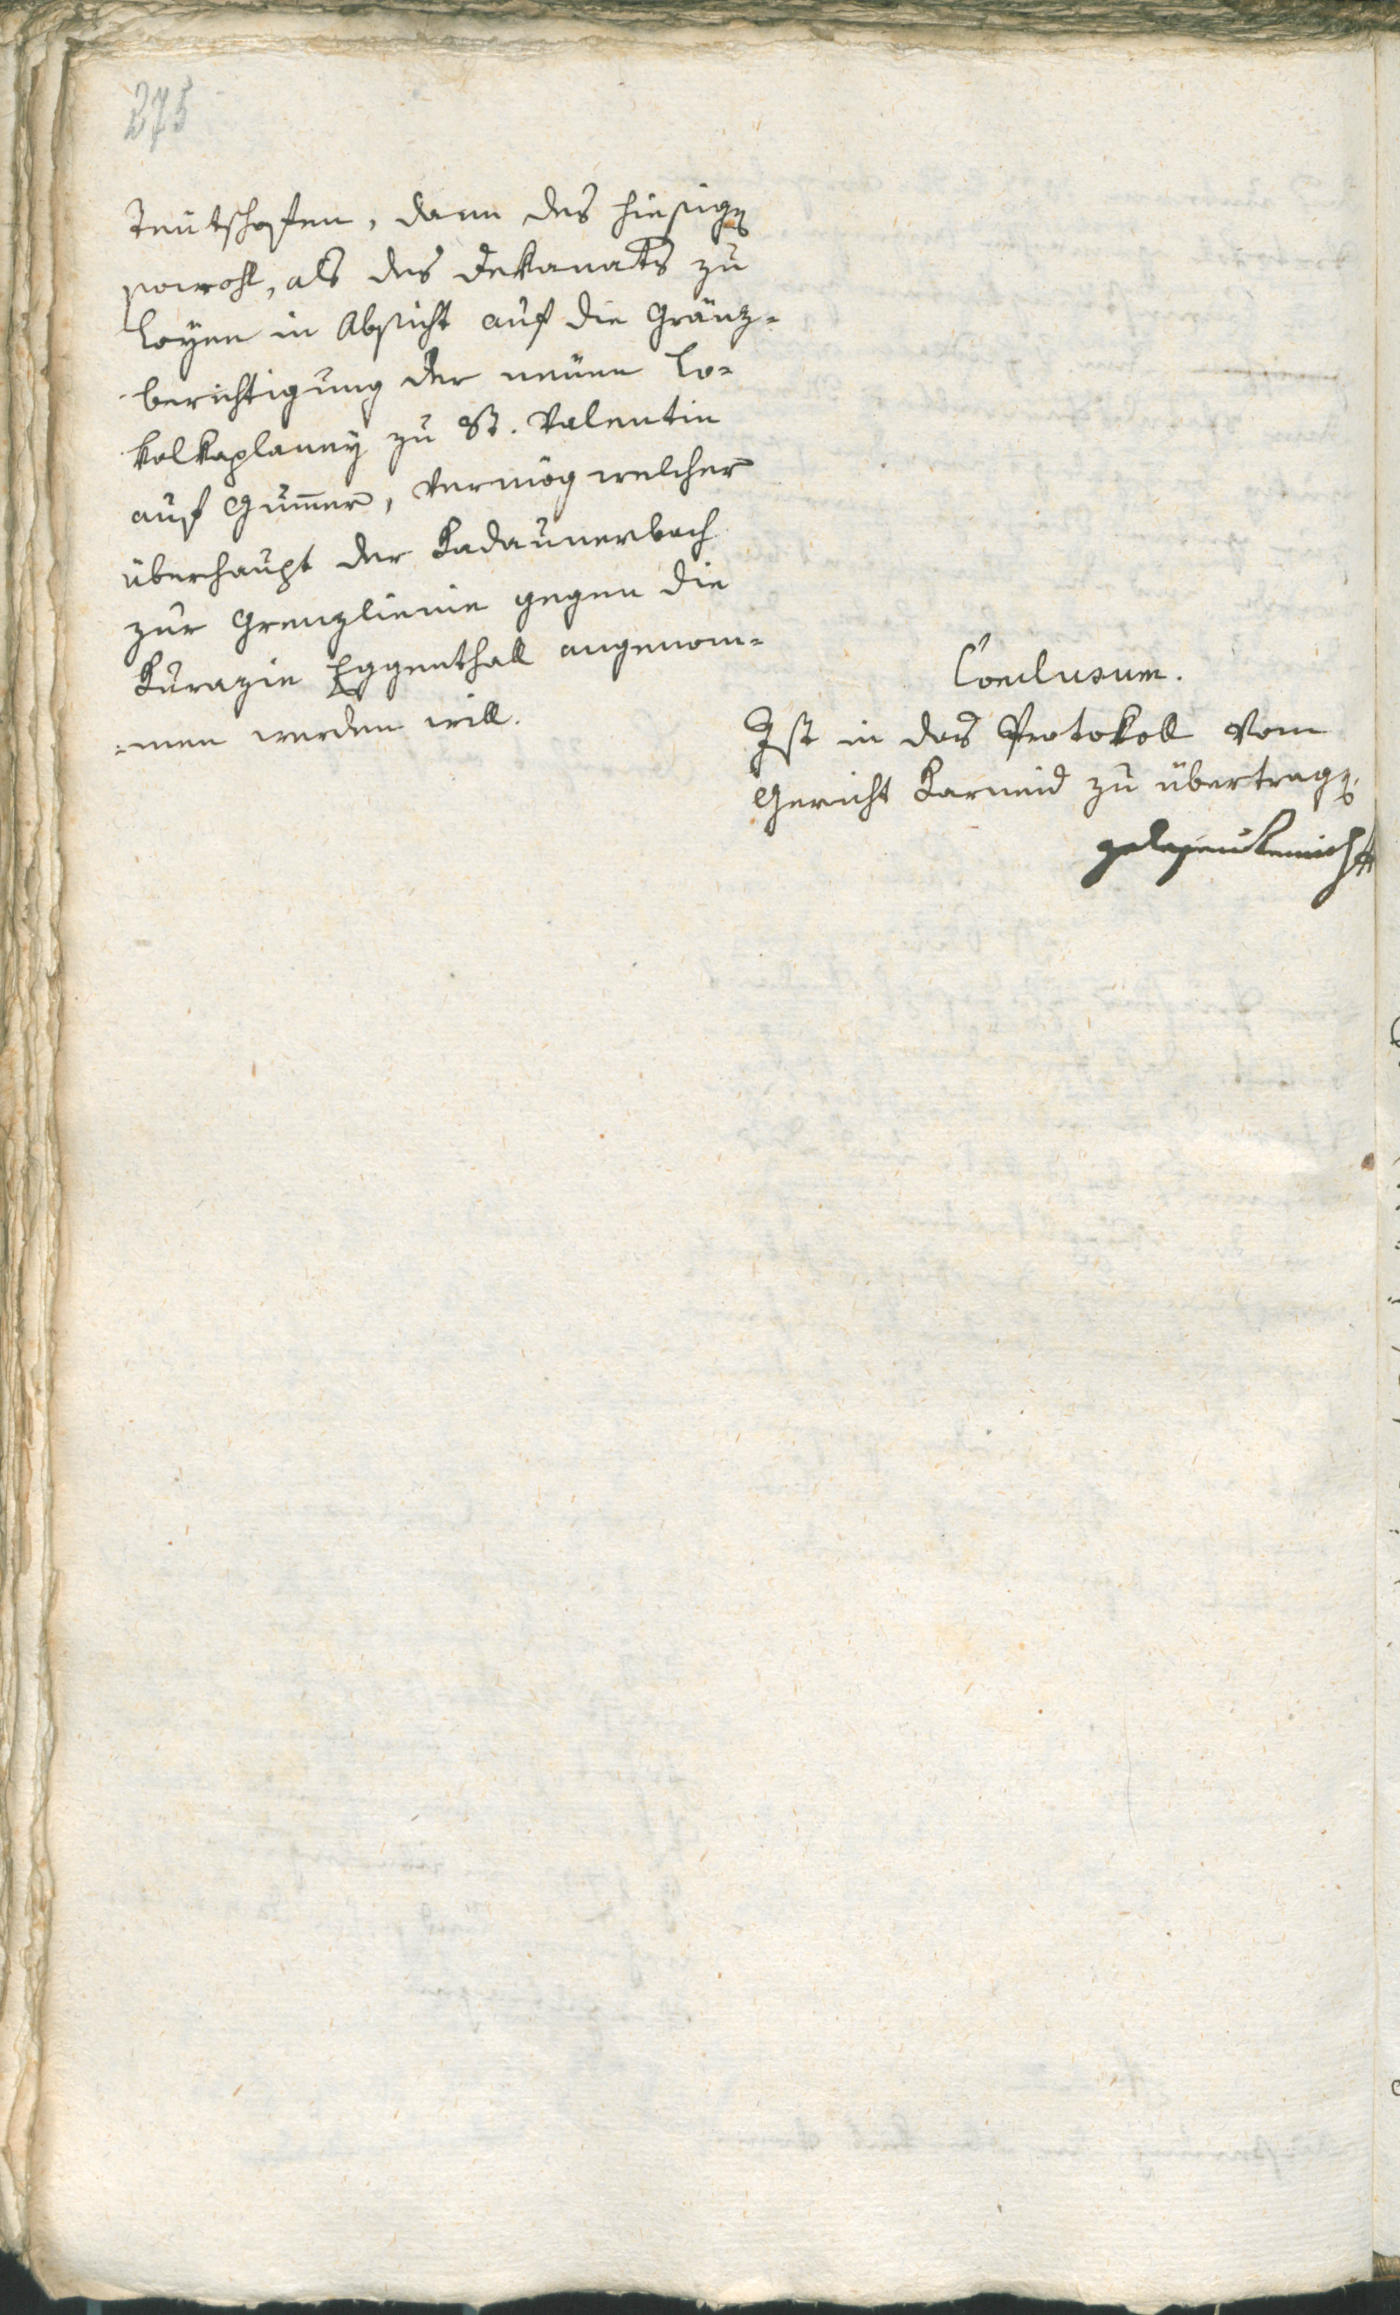 275
Teutschofen, dann des hiesigen
sowohl, als des Dekanats zu
Layen in Absicht auf die Gränz-
berichtigung der neüen Lo-
kalkaplaney zu St. Valentin
auf Gummer, vermög welcher
überhaupt der Kadaunerbach
zur Grenzlienie gegen die
Kurazie Eggenthall angenom-
men werden will.
Conclusum.
Ist in das Protokoll vom
Gericht Karneid zu übertragen.